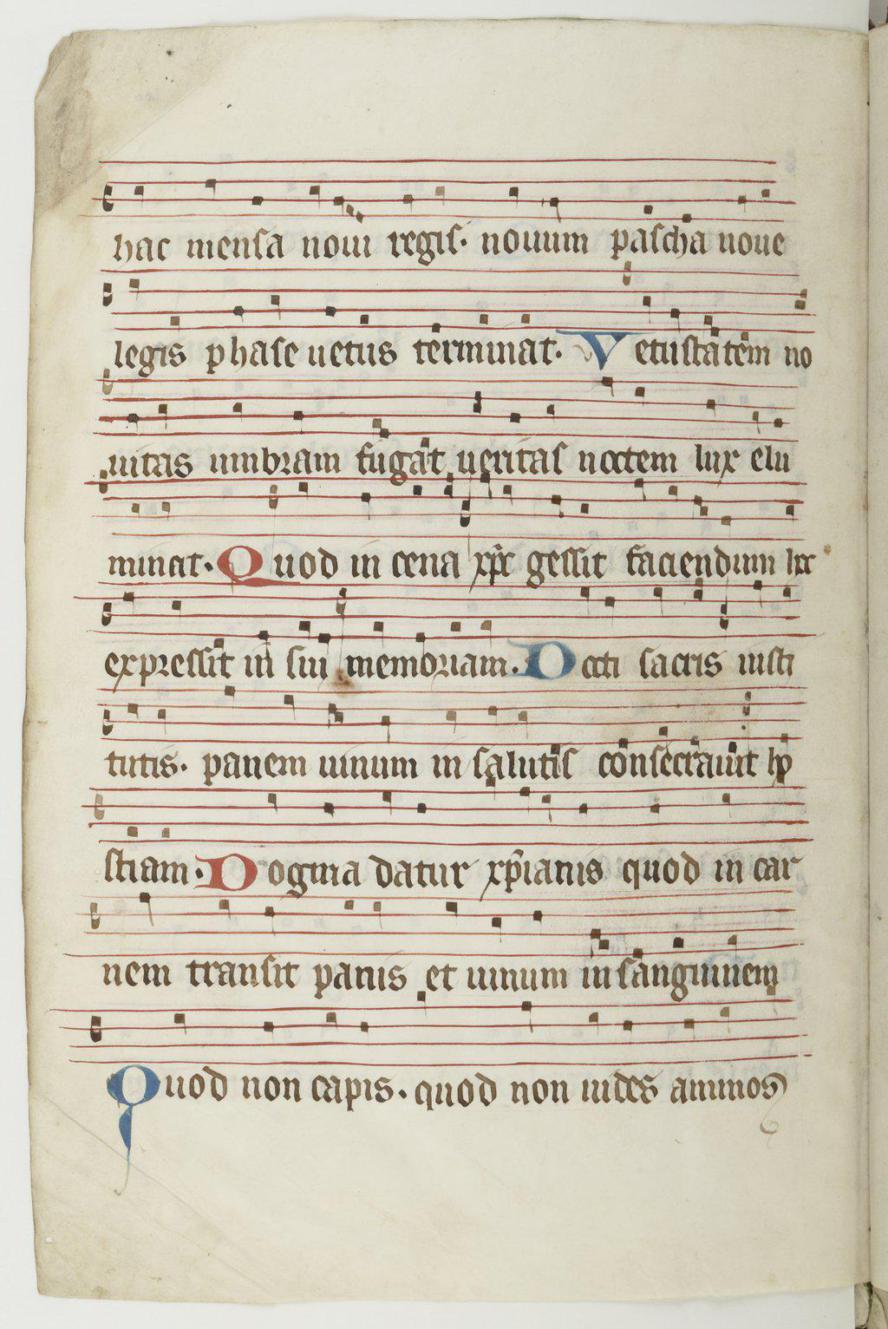 hac mensa noui regis· nouum pascha noue
legis phase uetus terminat· Vetustatem no
uitas umbram fugat ueritas noctem lux elu
minat· Quod in cena xp̄c gessit faciendum hc
expressit in sui memoriam· Docti sacris insti
tutis· panem uinum in salutis consecrauit ho
stiam· Dogma datur xp̄ianis quod in car
nem transit panis et uinum in sanguinem
Quod non capis· quod non uides animosꝰ